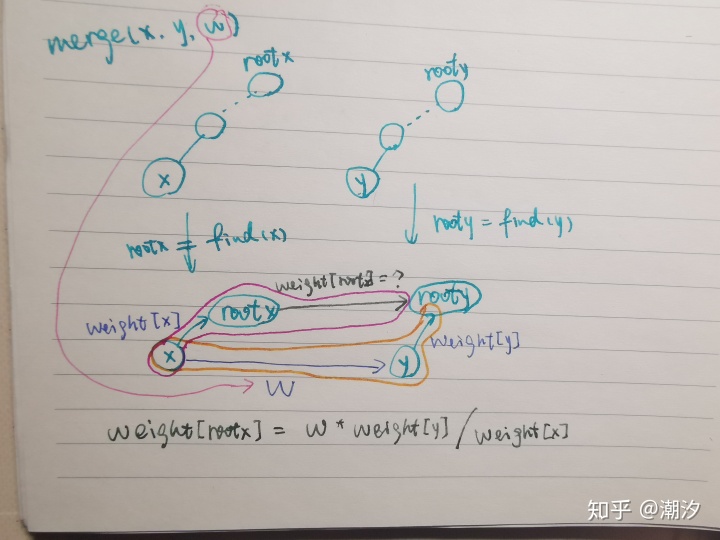 merge(x, y, w)
rootx
rooty
x
y
rootx = find(x)
rooty = find(y)
weight[rootx] = ?
rootx
rooty
weight[x]
weight[y]
x
y
W
weight[rootx] = w * weight[y] / weight[x]
知乎 @潮汐